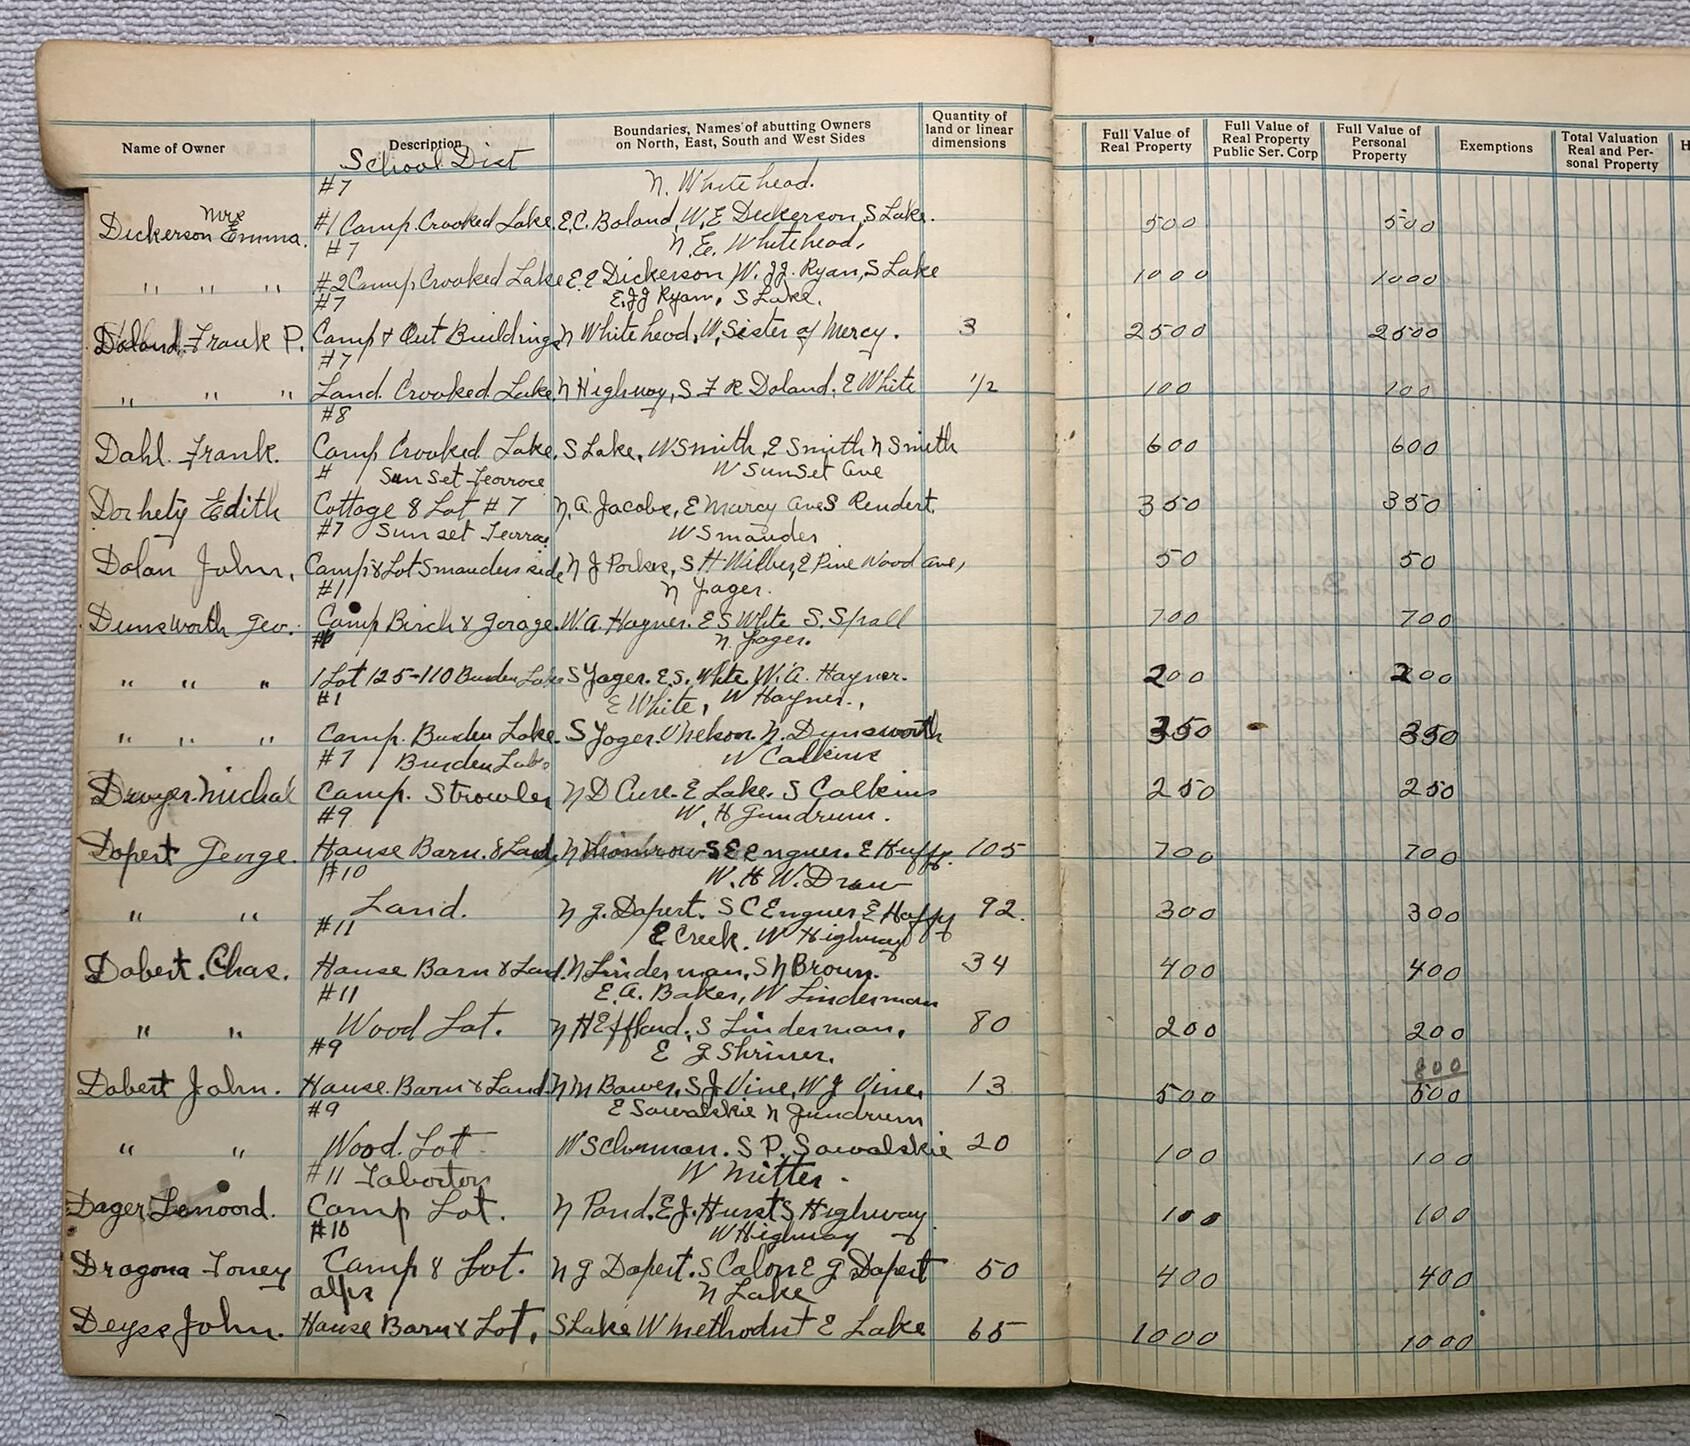 Name of Owner Description Boundaries, Names of abutting Owners on North, East, South and West Sides Quantity of land or linear dimensions Full Value of Real Property Full Value of Real Property Public Ser. Corp Full Value of Personal Property Exemptions Total Valuation Real and Personal Property H
School Dist
#7 N. Whitehead.
Mrs
Dickerson Emma. #1 Camp. Crooked Lake. E.C. Boland, W.E Dickerson, S Lake. 500 500
#7 N.E. Whitehead,
" " " #2 Camp Crooked Lake E.E Dickerson W. JJ. Ryan, S Lake 1000 1000
#7 E.JJ Ryan, S Lake.
Doland, Frank P. Camp & Out Buildings N Whitehead, W, Sister of Mercy. 3 2500 2500
#7
" " " Land. Crooked Lake. N Highway, S F R Doland. E White 1/2 100 100
#8
Dahl. Frank. Camp Crooked Lake. S Lake, W Smith, E Smith N Smith 600 600
# Sun Set Terrace W Sunset Ave
Dorhety Edith Cottage & Lot #7 N. A. Jacobs, E Marcy Ave S Rendert. 350 350
#7 Sun set Terrace W Smauder
Dolan John, Camp & Lot Smauders side N J Parker, S H Wilber, E Pine Wood ave, 50 50
#11 N Yager.
Dunsworth Geo. Camp Birch & garage. W.A. Hayner. E S White S. Spall 700 700
N. Yager.
" " " 1 Lot 125-110 Burden Lake S Yager. E.S. White. W.A. Hayner. 200 200
#1 E White, W Hayner.,
" " " Camp. Burden Lake. S Yager. N. Dunsworth 350 350
#7 Burden Lake W Calkins
Dwyer. Michal Camp. Strowler N D Cure. E Lake. S Calkins 250 250
#9 W. H Gundrum.
Dopert George. House Barn. & Land, N S E Engner. E Huffy. 105 700 700
#10 W. H W. Draw
" " Land. N G. Dopert. S C Engner E Hoffy 92. 300 300
#11 E Creek. W Highway
Dobert. Chas. House Barn & Land. N Linderman, S N Brown. 34 400 400
#11 E.A. Baker, W Linderman
" " Wood Lot. N H Effland. S Linderman. 80 200 200
#9 E G Shriner. 800
Dobert John. House. Barn & Land. N M Bower, S J. Vine, W J Vine. 13 500 500
#9 E Sowalskie N Gundrum
" " Wood. Lot W Schuman. S P. Sowalskie 20 100 100
#11 Taborton W Mitter.
Dager Lenoord. Camp Lot. N Pond. E J. Hurst S Highway 100 100
#10 W Highway
Dragona Toney Camp & Lot. N G Dopert. S Calon E G Dopert 50 400 400
alps N Lake
Deyss John. House Barn & Lot, S Lake W Methodist E Lake 65 1000 1000